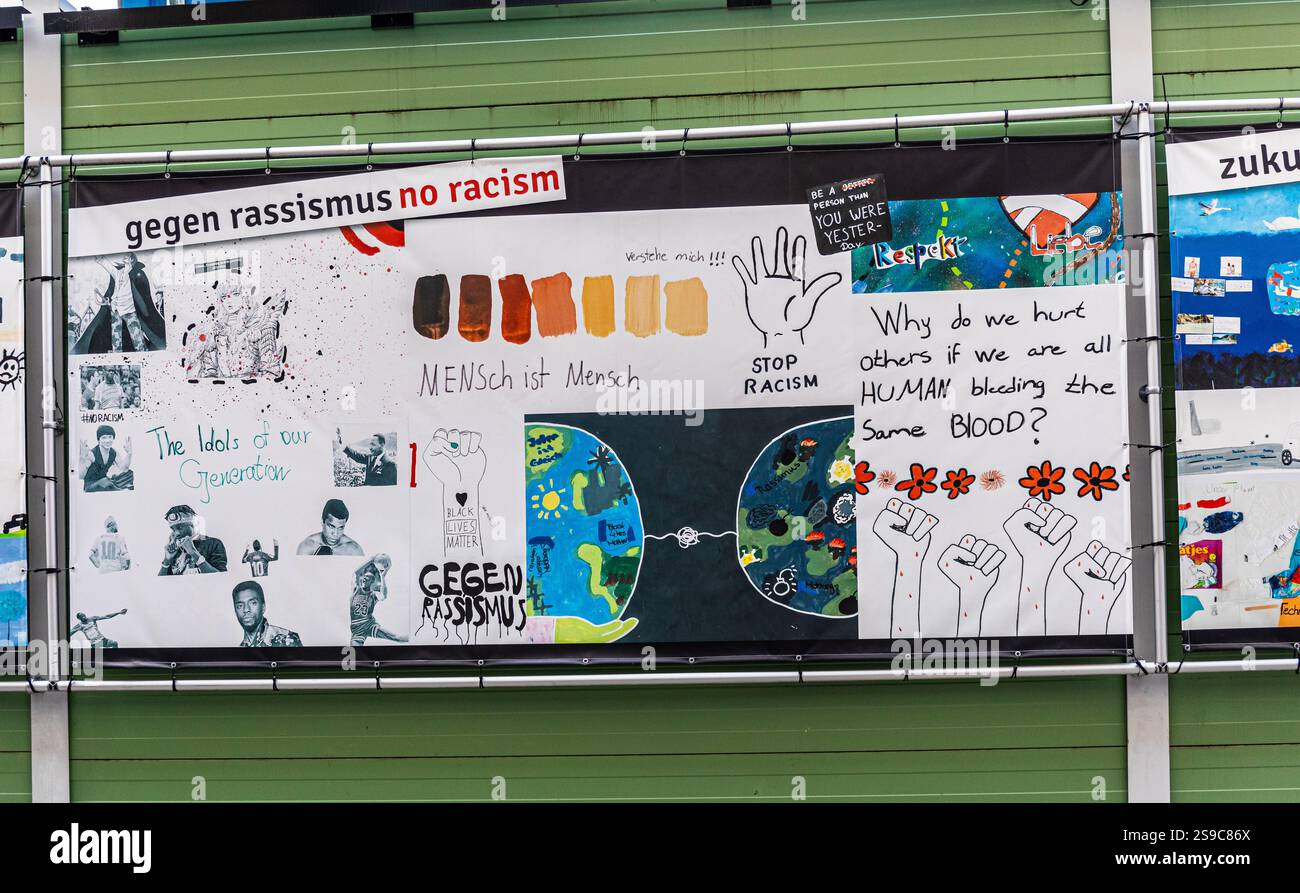 gegen rassismus no racism
zuku
BE A BETTER
PERSON THAN
YOU WERE
YESTER-
DAY
Respekt
Liebe
Verstehe mich!!!
MENSch ist Mensch
STOP
RACISM
Why do we hurt
others if we are all
HUMAN bleeding the
Same BLOOD?
#NORACISM
The Idols of our
Generation
10
23
BLACK
LIVES
MATTER
GEGEN
RASSISMUS
Rassismus
Black
Lives
Matter
alamy
Image ID: 2S9C86X
www.alamy.com